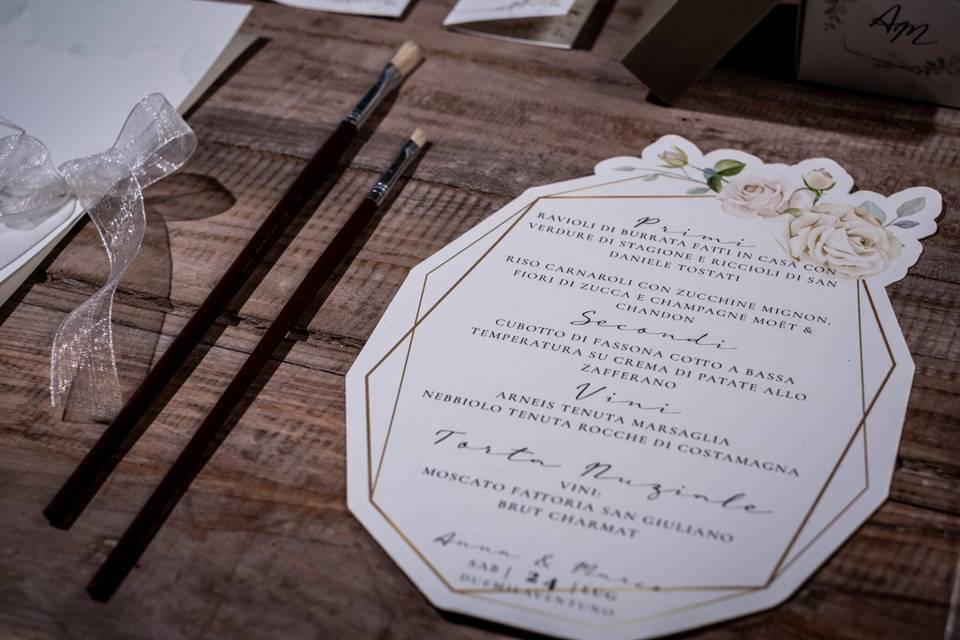 AM
Primi
RAVIOLI DI BURRATA FAITI IN CASA CON
VERDURE DI STAGIONE E RICCIOLI DI SAN
DANIELE TOSTATI
RISO CARNAROLI CON ZUCCHINE MIGNON,
FIORI DI ZUCCA E CHAMPAGNE MOËT &
CHANDON
Secondi
CUBOTTO DI FASSONA COTTO A BASSA
TEMPERATURA SU CREMA DI PATATE ALLO
ZAFFERANO
Vini
ARNEIS TENUTA MARSAGLIA
NEBBIOLO TENUTA ROCCHE DI COSTAMAGNA
Torta Nuziale
VINI:
MOSCATO FATTORIA SAN GIULIANO
BRUT CHARMAT
Anna & Marco
SAB | 24 | LUG
DUEMILAVENTUNO